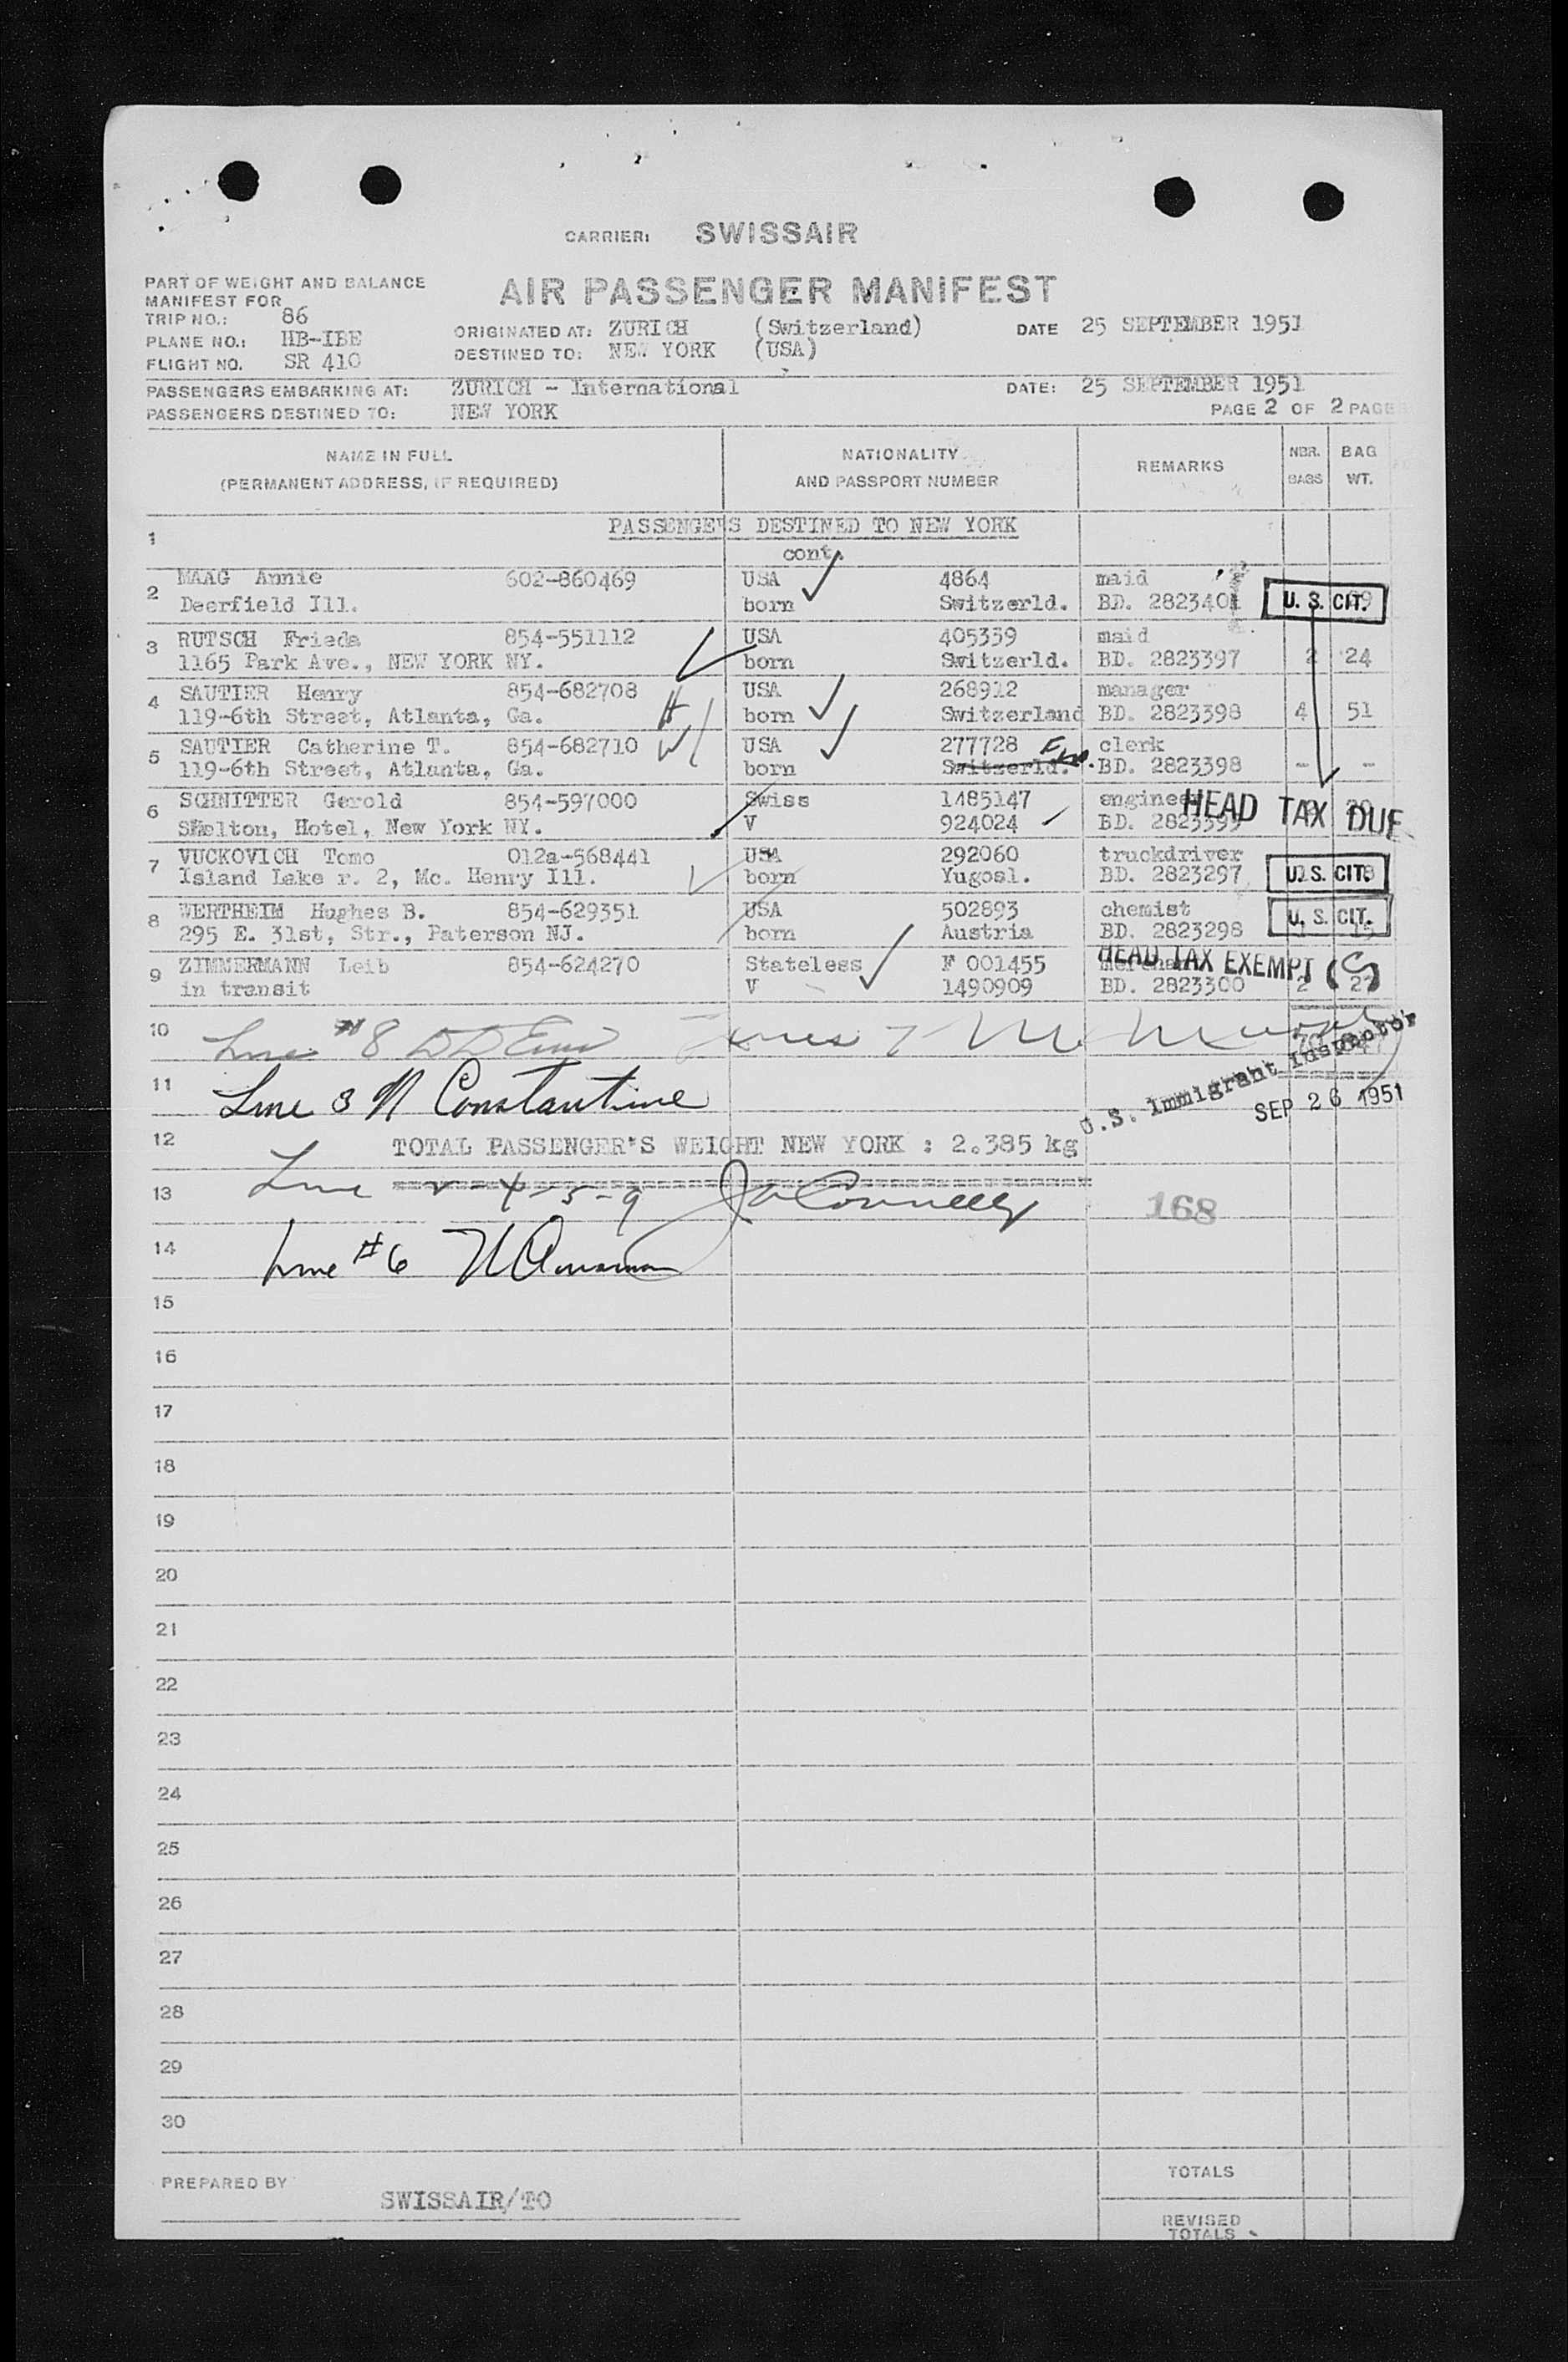 CARRIER: SWISSAIR
AIR PASSENGER MANIFEST
PART OF WEIGHT AND BALANCE
MANIFEST FOR
TRIP NO.: 86
PLANE NO.: HB-IBE
FLIGHT NO. SR 410
ORIGINATED AT: ZURICH (Switzerland)
DESTINED TO: NEW YORK (USA)
DATE 25 SEPTEMBER 1951
PASSENGERS EMBARKING AT: ZURICH - International
DATE: 25 SEPTEMBER 1951
PASSENGERS DESTINED TO: NEW YORK
PAGE 2 OF 2 PAGE
NAME IN FULL NATIONALITY REMARKS NBR. BAG
(PERMANENT ADDRESS, IF REQUIRED) AND PASSPORT NUMBER BAGS WT.
1 PASSENGERS DESTINED TO NEW YORK
cont.
2 MAAG Annie 602-860469 USA 4864 maid
Deerfield Ill. born Switzerld. BD. 2823401 U. S. CIT.
3 RUTSCH Frieda 854-551112 USA 405339 maid
1165 Park Ave., NEW YORK NY. born Switzerld. BD. 2823397 2 24
4 SAUTIER Henry 854-682708 H USA 268912 manager
119-6th Street, Atlanta, Ga. born Switzerland BD. 2823398 4 51
5 SAUTIER Catherine T. 854-682710 W USA 277728 clerk
119-6th Street, Atlanta, Ga. born Switzerld. BD. 2823398 - -
6 SCHNITTER Gerold 854-597000 Swiss 1485147 engineer HEAD TAX DUE
Shelton, Hotel, New York NY. V 924024 BD. 2823399
7 VUCKOVICH Tomo 012a-568441 USA 292060 truckdriver
Island Lake r. 2, Mc. Henry Ill. born Yugosl. BD. 2823297 U. S. CIT.
8 WERTHEIM Hughes B. 854-629351 USA 502893 chemist
295 E. 31st, Str., Paterson NJ. born Austria BD. 2823298 U. S. CIT.
9 ZIMMERMANN Leib 854-624270 Stateless F 001455 merchant HEAD TAX EXEMPT
in transit V 1490909 BD. 2823300 2 27
10 Line #8
U.S. Immigrant Inspector
11 Line 3 N Constantine
SEP 26 1951
12 TOTAL PASSENGER'S WEIGHT NEW YORK : 2.385 kg
13 Line 2-4-5-9 J Connelly 168
14 Line #6
15
16
17
18
19
20
21
22
23
24
25
26
27
28
29
30
TOTALS
PREPARED BY SWISSAIR/TO
REVISED
TOTALS